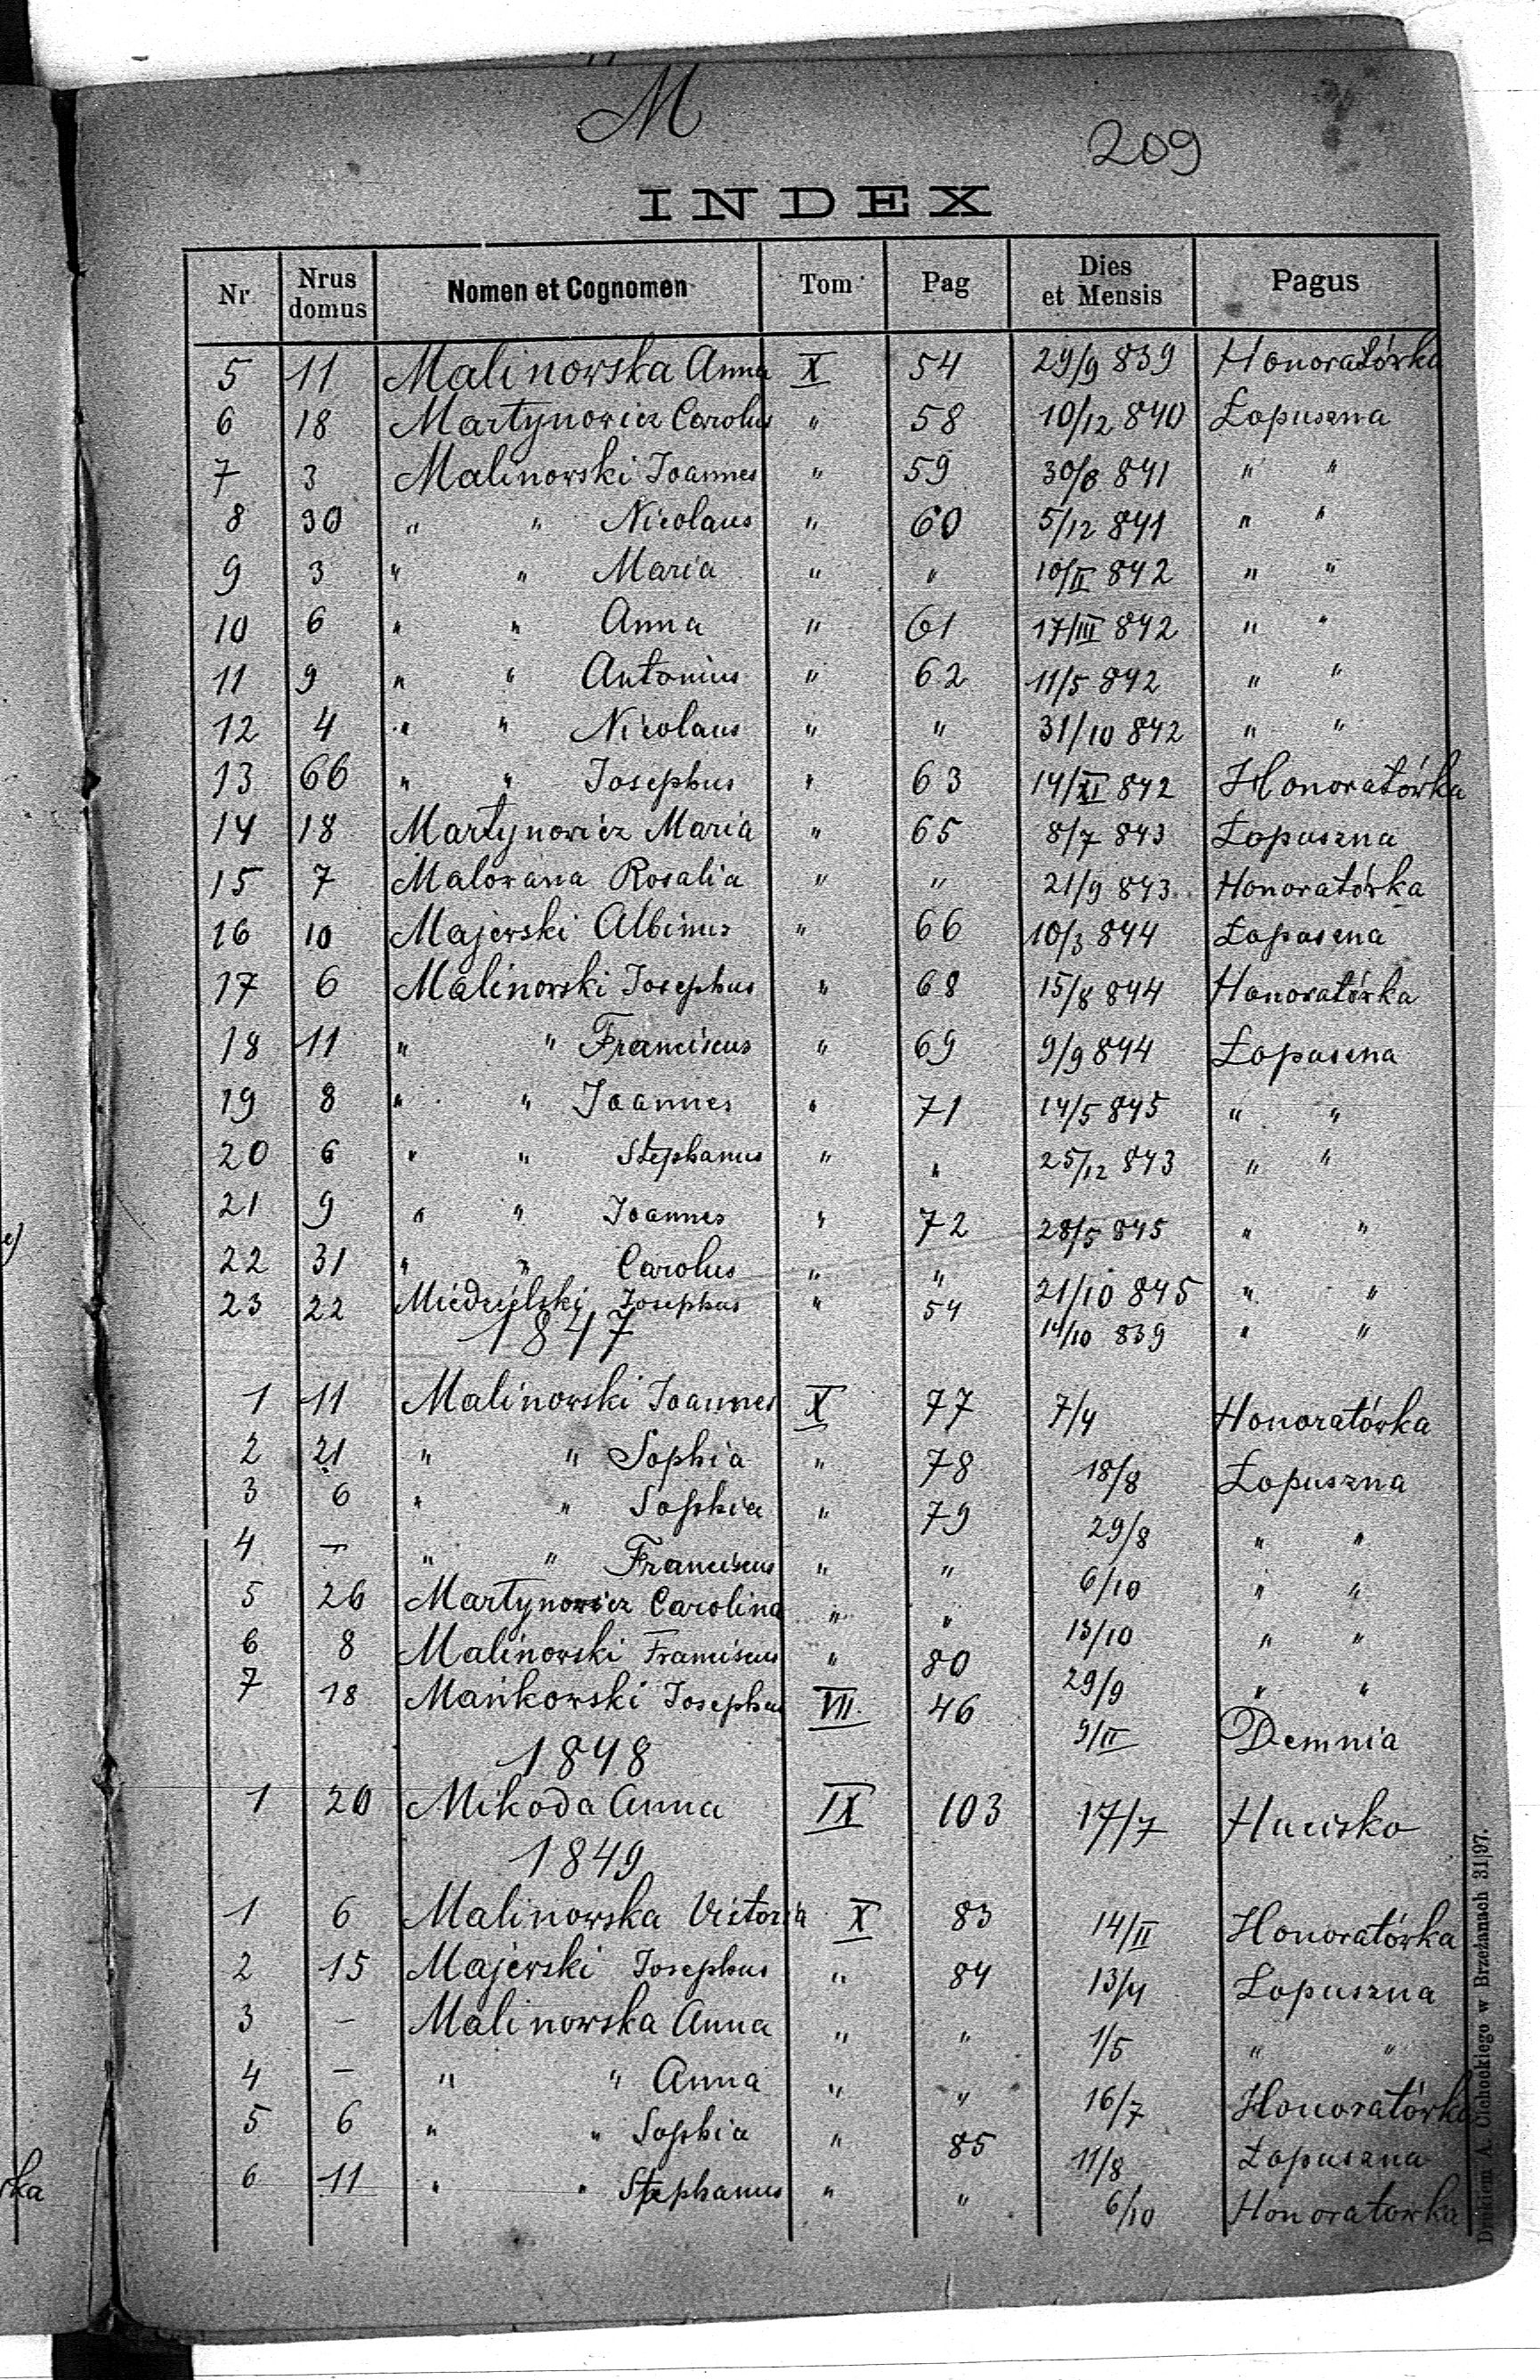 M
209
INDEX
Nr Nrus domus Nomen et Cognomen Tom Pag Dies et Mensis Pagus
5 11 Malinowska Anna X 54 29/9 839 Honoratówka
6 18 Martynowicz Carolus " 58 10/12 840 Łopuszna
7 3 Malinowski Joannes " 59 30/8 841 " "
8 30 " " Nicolaus " 60 5/12 841 " "
9 3 " " Maria " " 10/II 842 " "
10 6 " " Anna " 61 17/III 842 " "
11 9 " " Antonius " 62 11/5 842 " "
12 4 " " Nicolaus " " 31/10 842 " "
13 66 " " Josephus " 63 14/XI 842 Honoratówka
14 18 Martynowicz Maria " 65 8/7 843 Łopuszna
15 7 Malowana Rosalia " " 21/9 843 Honoratówka
16 10 Majewski Albinus " 66 10/3 844 Łopuszna
17 6 Malinowski Josephus " 68 15/8 844 Honoratówka
18 11 " " Franciscus " 69 9/9 844 Łopuszna
19 8 " " Joannes " 71 14/5 845 " "
20 6 " " Stephanus " " 25/12 843 " "
21 9 " " Joannes " 72 28/5 845 " "
22 31 " " Carolus " " 21/10 845 " "
23 22 Miedzielski Josephus " 54 14/10 839 " "
1847
1 11 Malinowski Joannes X 77 7/4 Honoratówka
2 21 " " Sophia " 78 18/8 Łopuszna
3 6 " " Sophia " 79 29/8 " "
4 — " " Franciscus " " 6/10 " "
5 26 Martynowicz Carolina " " 13/10 " "
6 8 Malinowski Franciscus " 80 29/9 " "
7 18 Mańkowski Josephus VII. 46 9/II Demnia
1848
1 20 Mikoda Anna IX 103 17/7 Hucisko
1849
1 6 Malinowska Victoria X 83 14/II Honoratówka
2 15 Majewski Josephus " 84 13/4 Łopuszna
3 — Malinowska Anna " " 1/5 " "
4 — " " Anna " " 16/7 Honoratówka
5 6 " " Sophia " 85 11/8 Łopuszna
6 11 " " Stephanus " " 6/10 Honoratowka
Drukiem A. Cichockiego w Brzeżanach 31|97.